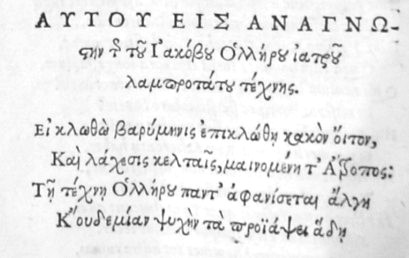 ΑΥΤΟΥ ΕΙΣ ΑΝΑΓΝΩ-
σιν τῆς τοῦ Ἰακόβου Ὀλλήρου ἰατροῦ
λαμπροτάτου τέχνης.
Εἰ κλωθὼ βαρύμηνις ἐπικλώθῃ κακὸν ὄιτον,
Καὶ λάχεσις κελταῖς, μαινομένη τ' Ἄτροπος:
Τῇ τέχνῃ Ὀλλήρου παντ' ἀφανίσεται ἄλγη
Κ' οὐδεμίαν ψυχὴν τὰ προϊάψει ἅδῃ